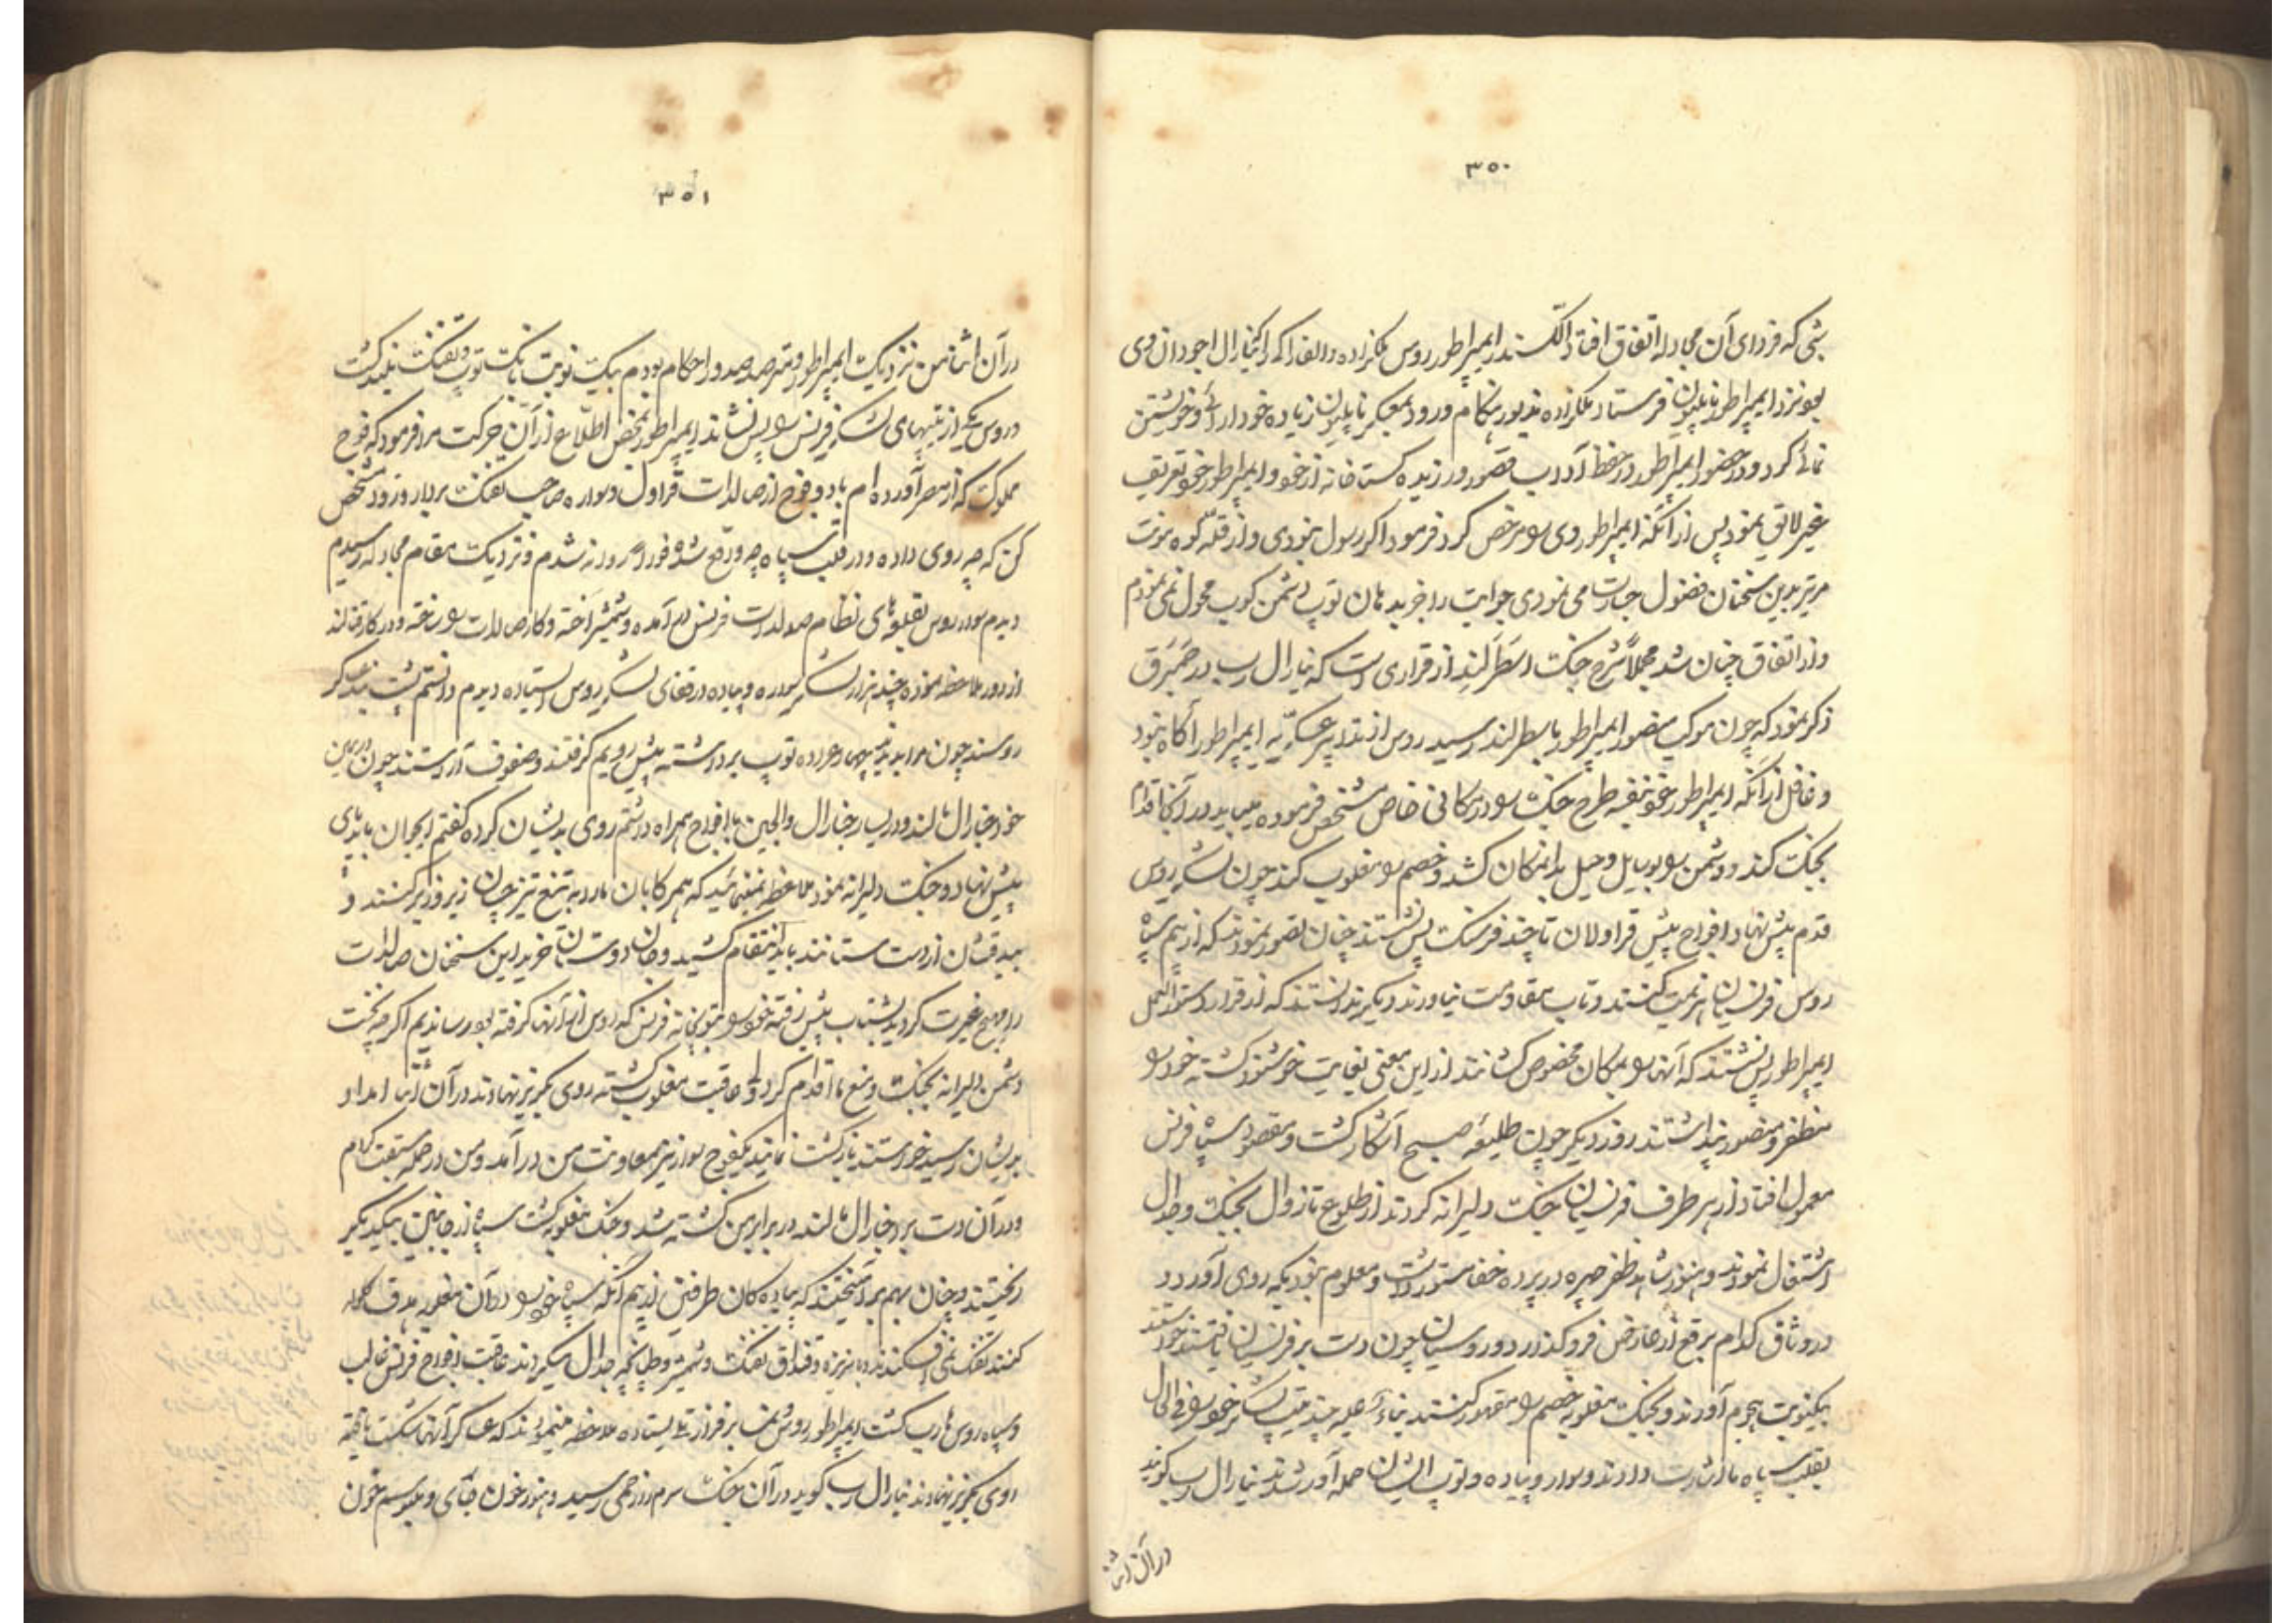 ۳۵۰
شبی که فردای آن مجادله اتفاق افتاد الکسندر ایمپراطور روس ملکزاده دالغاراکه را که نیارال اجودان وی
بود نزد ایمپراطور ناپلیون فرستاد ملکزاده مذبور هنگام ورود بمعسکر ناپلیون زیاده خودارائی و خویشتن
نمائی کرد و در حضور ایمپراطور در حفظ آداب قصور ورزیده کستاخانه از خود و ایمپراطور خود تعریف
غیر لایق نمود پس از آنکه ایمپراطور وی را مرخص کرد فرمود اکر رسول نبودی و از قله کوه مونت
مرتر بدین سخنان فضول جسارت می نمودی جوابت را جز بدهان توپ دشمن کوب محول نمی نمودم
و از اتفاق چنان شد مجملاً شرح جنک اسطرلند از قراری است که نیارال رب در
ذکر نمود که چون موکب منصور ایمپراطور باسطرلند رسید روس از تدابیر عسکریه ایمپراطور آکاه نبود
و غافل از آنکه ایمپراطور خود بنفسه طرح جنک را در مکانی خاص مشخص فرموده میباید در آنجا اقدام
بجنک کند و دشمن را بوسایل و حیل بدانمکان کشد و خصم را مغلوب کند چون لشکر روس
قدم پیش نهاد افواج پیش قراولان تا چند فرسنک پس نشستند چنان تصور نمودند که از بیم سپاه
روس فرنسیان هزیمت کنند و تاب مقاومت نیاورند و دیکر ندانستند که از قرار دستورالعمل
ایمپراطور پس نشستند که آنها را بمکان مخصوص کشانند از این معنی بغایت خوشنود کشته خود را
مظفر و منصور پنداشتند روز دیکر چون طلیعه صبح آشکار کشت و مقصود سپاه فرنس
معمول افتاد از هر طرف فرنسیان جنک دلیرانه کردند از طلوع تا زوال بجنک و جدال
اشتغال نمودند و هنوز شاهد ظفر چهره در پرده خفا مستور داشت و معلوم نبود که روی آورد و
در وثاق کدام برقع از عارض فروکذارد و روسیان چون دست بر فرنسیان نیافتند خواستند
بیکنوبت هجوم آورند و بجنک مغلوبه خصم را مقهور کنند بناءً علیه چند تیپ لشکر خود را فی الحال
بقلب سپاه ما اشارت دادند و سوار و پیاده و توپ ایشان حمله آور شدند نیارال رب کوید
در آن اثنا
۳۵۱
در آن اثنا من نزدیک ایمپراطور و مترصد صدور احکام بودم بیک نوبت بانک توپ و تفنک بلند کشت
و روس یکی از تیپهای لشکر فرنس را پس نشاند ایمپراطور بمحض اطلاع از آن حرکت مرا فرمود که فوج
مملوک که از مصر آورده ام با دو فوج از صالدات قراول و سواره صاحب تفنک بردار و زود مشخص
کن که چه روی داده و در قلب سپاه چه واقع شده فوراً روانه شدم و نزدیک مقام مجادله رسیدم
دیدم سوار روس بقلوبهای نظام صولدات فرنس درآمده و شمشیر آخته و کار صالدات را ساخته و در کار قتالند
از دور ملاحظه نموده چند هزار لشکر سواره و پیاده در قفای لشکر روس ایستاده دیدم دانستم پشت بند عسکر
روسند چون مرا بدیدند چهار عراده توپ برداشته پیش رویم کرفتند و صفوف آراستند چون در یمین
خود خیارال مالند و در یسار خیارال والجین با افواج همراه داشتم روی بدیشان کرده کفتم ایجوان باید پای
پیش نهاد و جنک دلیرانه نمود ملاحظه نمینمائید که همرکابان ما را به تیغ تیز چسان زیر و زبر کنند و
بیدقشان از دست ستانند باید انتقام کشید و جان دوستان خرید این سخنان صالدات
را مهیج غیرت کردید بشتاب پیش رفته خود را بتوپخانه فرنس که روس از آنها کرفته بود رساندیم اکرچه نخست
دشمن دلیرانه بجنک و منع ما اقدام کرد ولی عاقبت مغلوب کشته روی بکریز نهادند در آن اثنا امداد
بدیشان رسید خواستند بازکشت نمایند یکفوج سوار نیز بمعاونت من درآمد و من در حمله سبقت کردم
و در آن دست برد خیارال مالند در برابر من کشته شد و جنک مغلوبه کشت سپاه از جانبین بیکدیکر
ریختند و چنان بهم برآمیختند که پیادکان طرفین از بیم آنکه سپاه خود را در آن مغلوبه هدف کلوله
کنند تفنک نمی افکندند و با نیزه و قنداق تفنک و شمشیر و طپانچه جدال میکردند عاقبت افواج فرنس غالب
و سپاه روس هارب کشت ایمپراطور روس و نمسه بر فراز تلی ایستاده ملاحظه مینمودند که عساکر آنها شکست یافته
روی بکریز نهادند نیارال رب کوید در آن جنک سرم را زخمی رسید و هنوز خون قبای و ملبوسم خون